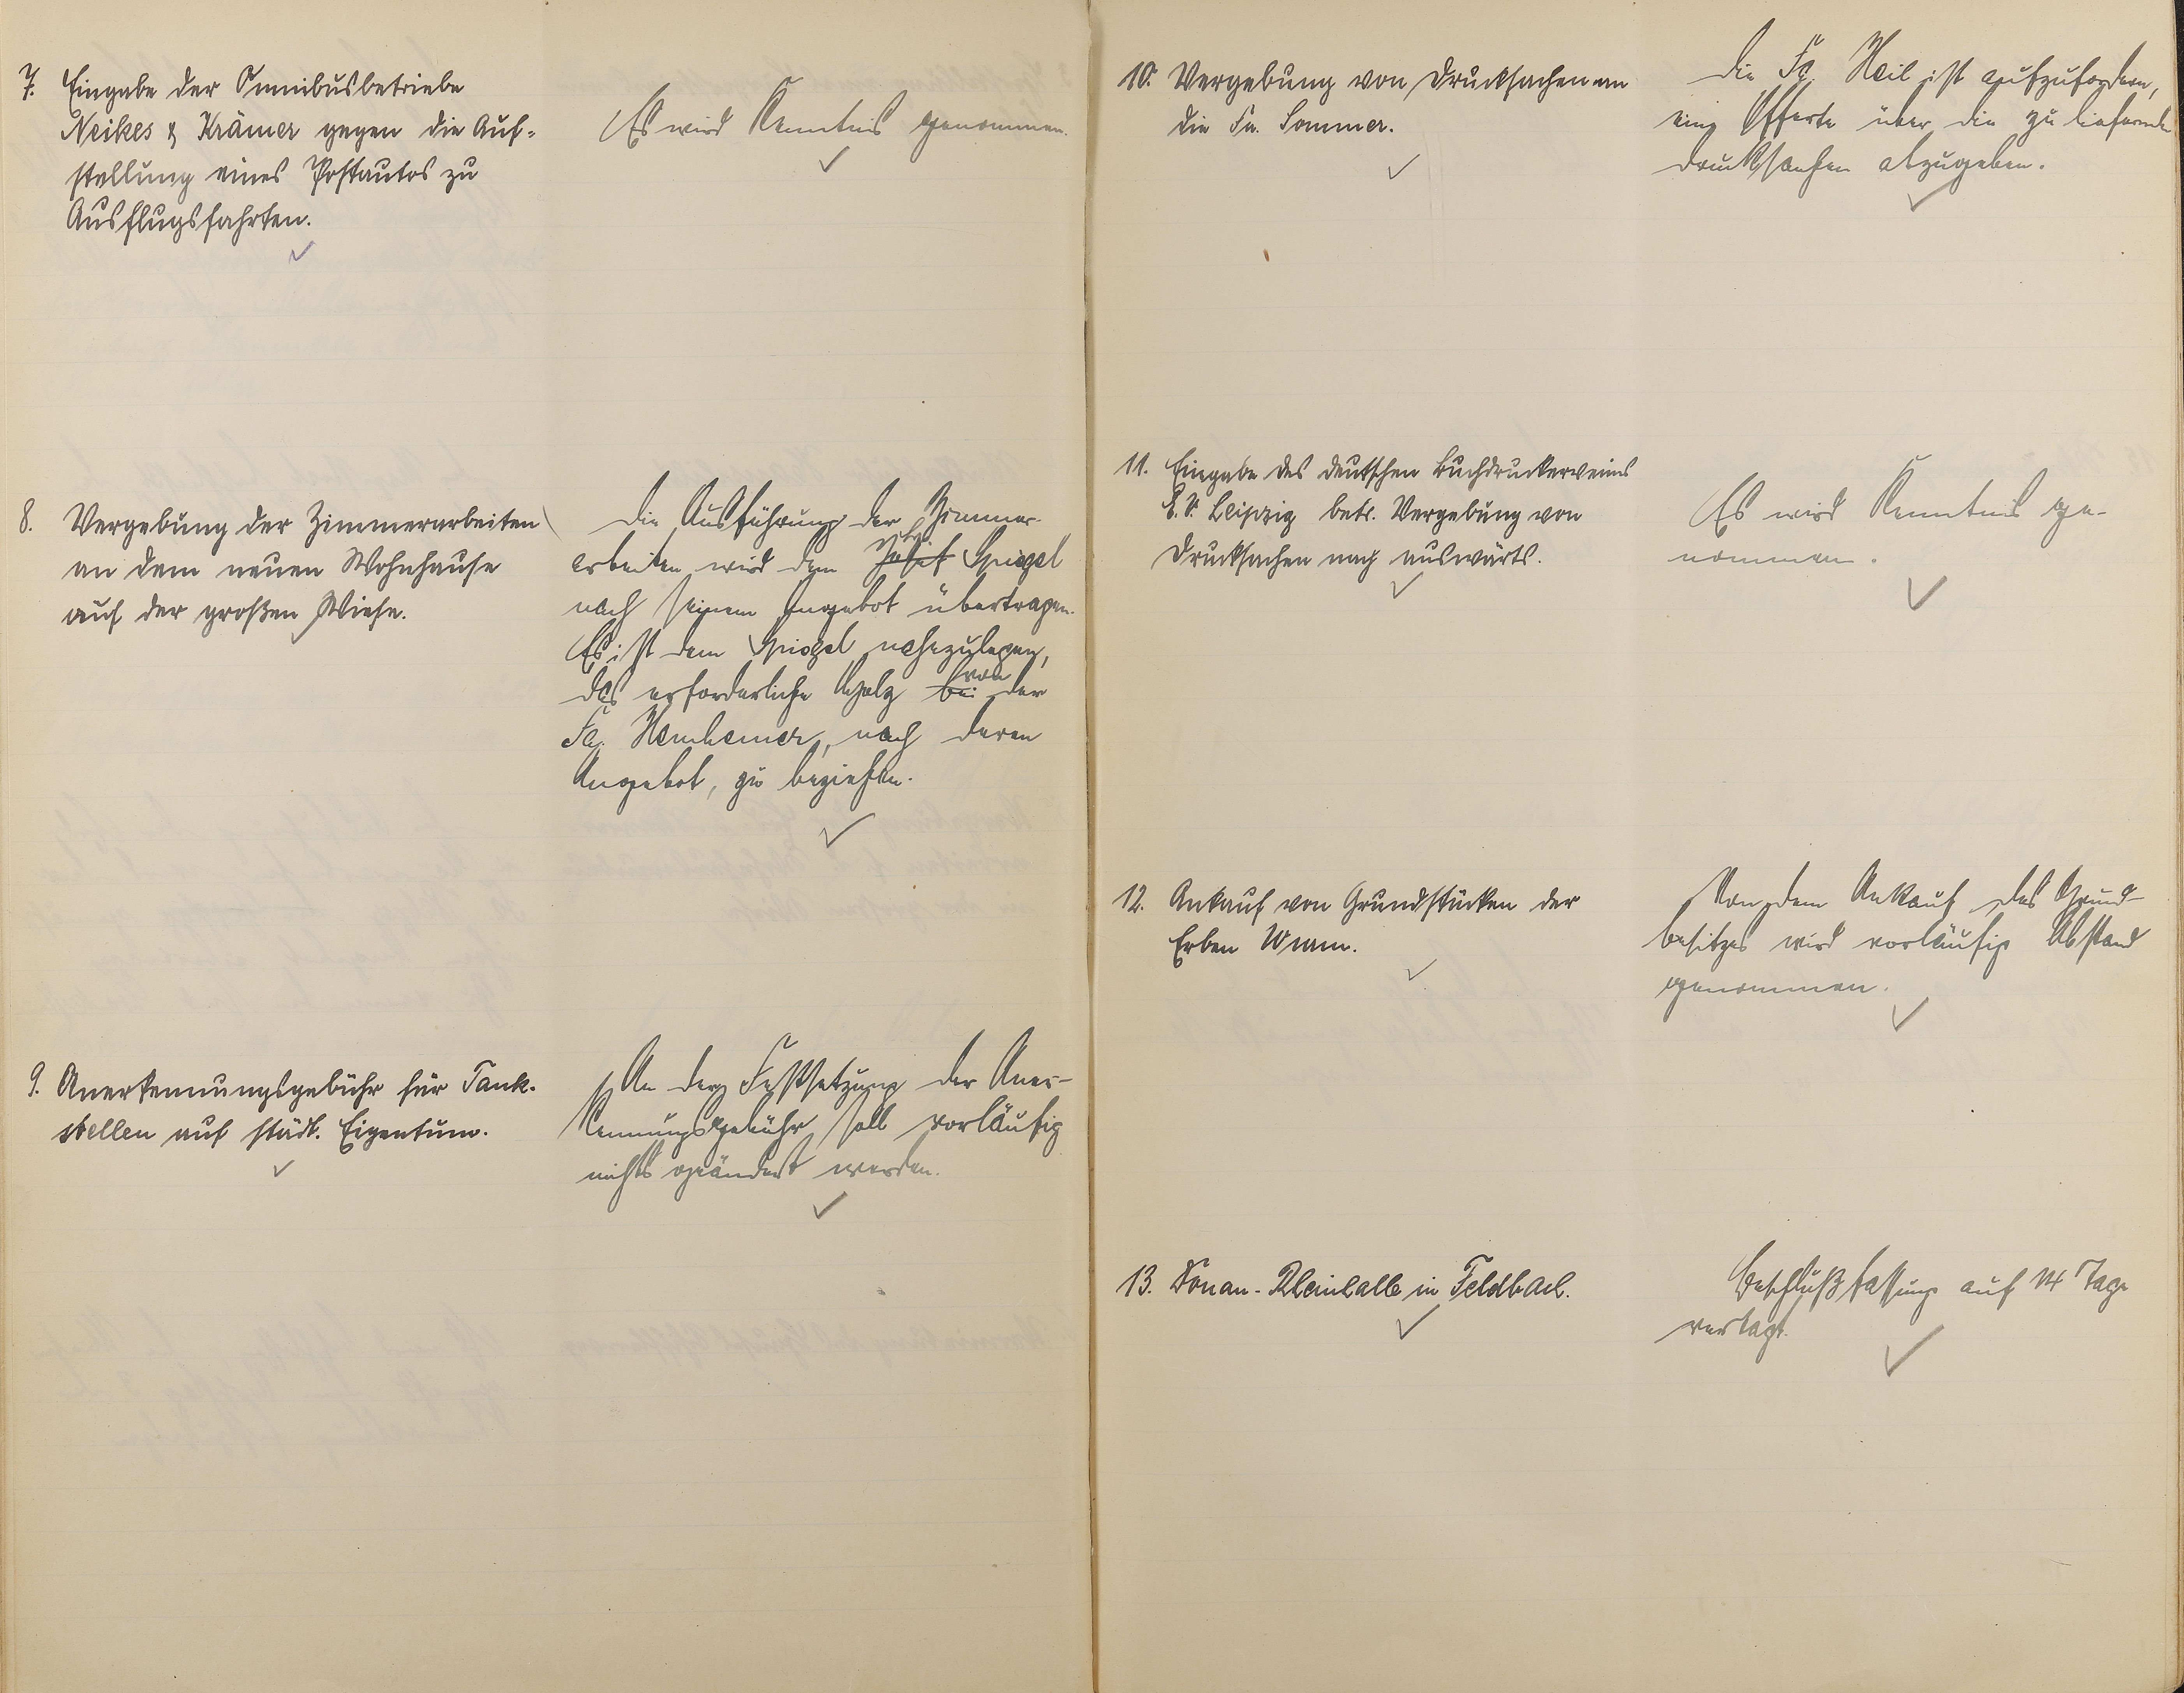 7. Eingabe der Omnibusbetriebe
Neikes & Krämer gegen die Auf-
stellung eines Postautos zu
Ausflugsfahrten.
Es wird Kenntnis genommen.
8. Vergebung der Zimmerarbeiten
an dem neuen Wohnhause
auf der großen Wiese.
Die Ausführung der Zimmer-
arbeiten wird dem Spiegel
nach seinem Angebot übertragen.
Es ist dem Spiegel nahezulegen,
das erforderliche Holz bei von der
Fa. nach deren
Angebot, zu beziehen.
9. Anerkennungsgebühr für Tank-
stellen auf städt. Eigentum.
An der Festsetzung der Aner-
kennungsgebühr soll vorläufig
nichts geändert werden.
10. Vergebung von Drucksachen an
die Fa. Sommer.
Die Fa. Keil ist aufzufordern,
eine Offerte über die zu liefernden
Drucksachen abzugeben.
11. Eingabe des deutschen Buchdruckervereins
E.V. Leipzig betr. Vergebung von
Drucksachen nach auswärts.
Es wird Kenntnis ge-
nommen.
12. Ankauf von Grundstücken der
Erben
Von dem Ankauf des Grund-
besitzes wird vorläufig Abstand
genommen.
13. in Feldbach.
Beschlußfassung auf 14 Tage
vertagt.